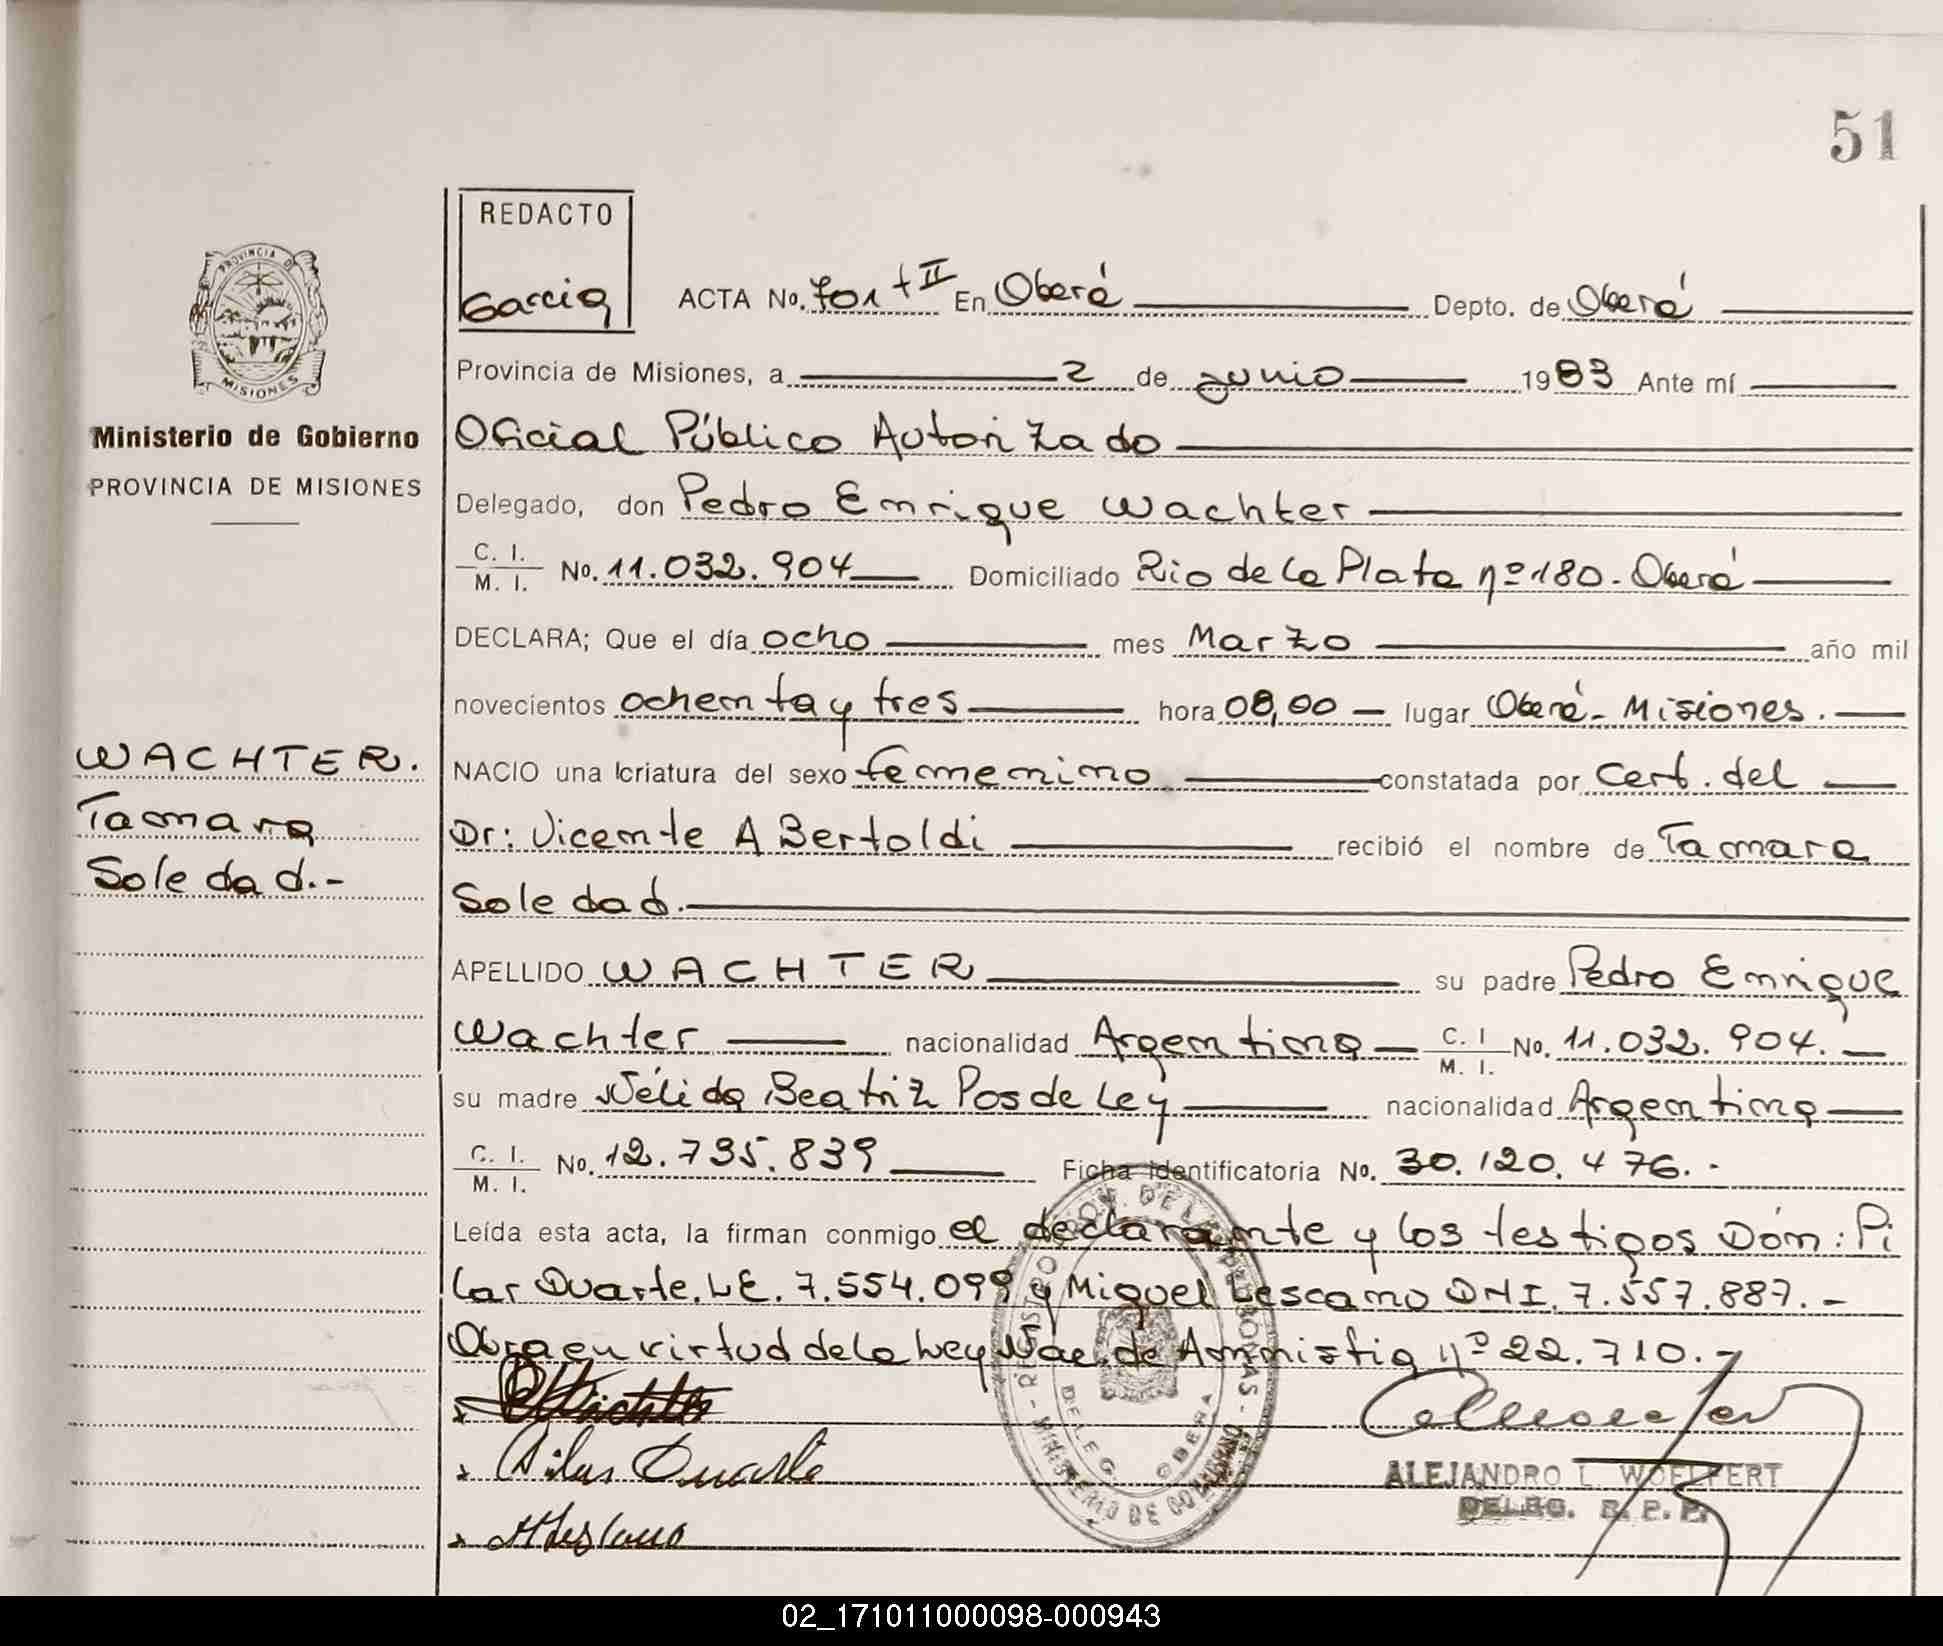 51
REDACTO
Garcia
ACTA No. 701 t II En Oberá Depto. de Oberá
PROVINCIA DE
MISIONES
Ministerio de Gobierno
PROVINCIA DE MISIONES
Provincia de Misiones, a 2 de Junio 1983 Ante mí
Oficial Público Autorizado
Delegado, don Pedro Enrique Wachter
C. I.
M. I. No. 11.032.904 Domiciliado Rio de la Plata nº 180. Oberá
DECLARA; Que el día ocho mes Marzo año mil
novecientos ochenta y tres hora 08,00 lugar Oberá - Misiones.
WACHTER.
Tamara
Soledad.-
NACIO una criatura del sexo femenino constatada por Cert. del
Dr: Vicente A Bertoldi recibió el nombre de Tamara
Soledad.
APELLIDO WACHTER su padre Pedro Enrique
Wachter nacionalidad Argentina C. I
M. I. No. 11.032.904.
su madre Nélida Beatriz Pos de Ley nacionalidad Argentina
C. I.
M. I. No. 12.795.839 Ficha identificatoria No. 30.120.476.-
Leída esta acta, la firman conmigo el declarante y los testigos Dón: Pi
lar Duarte. LE. 7.554.099 y Miguel Lescano DNI. 7.557.887.-
Obra en virtud de la Ley Nac. de Amnistia nº 22.710.-
Pilar Duarte
ALEJANDRO L. WOELFERT
DELEG. R. P. P.
DELEG. OBERA
MINISTERIO DE GOBIERNO
02_171011000098-000943